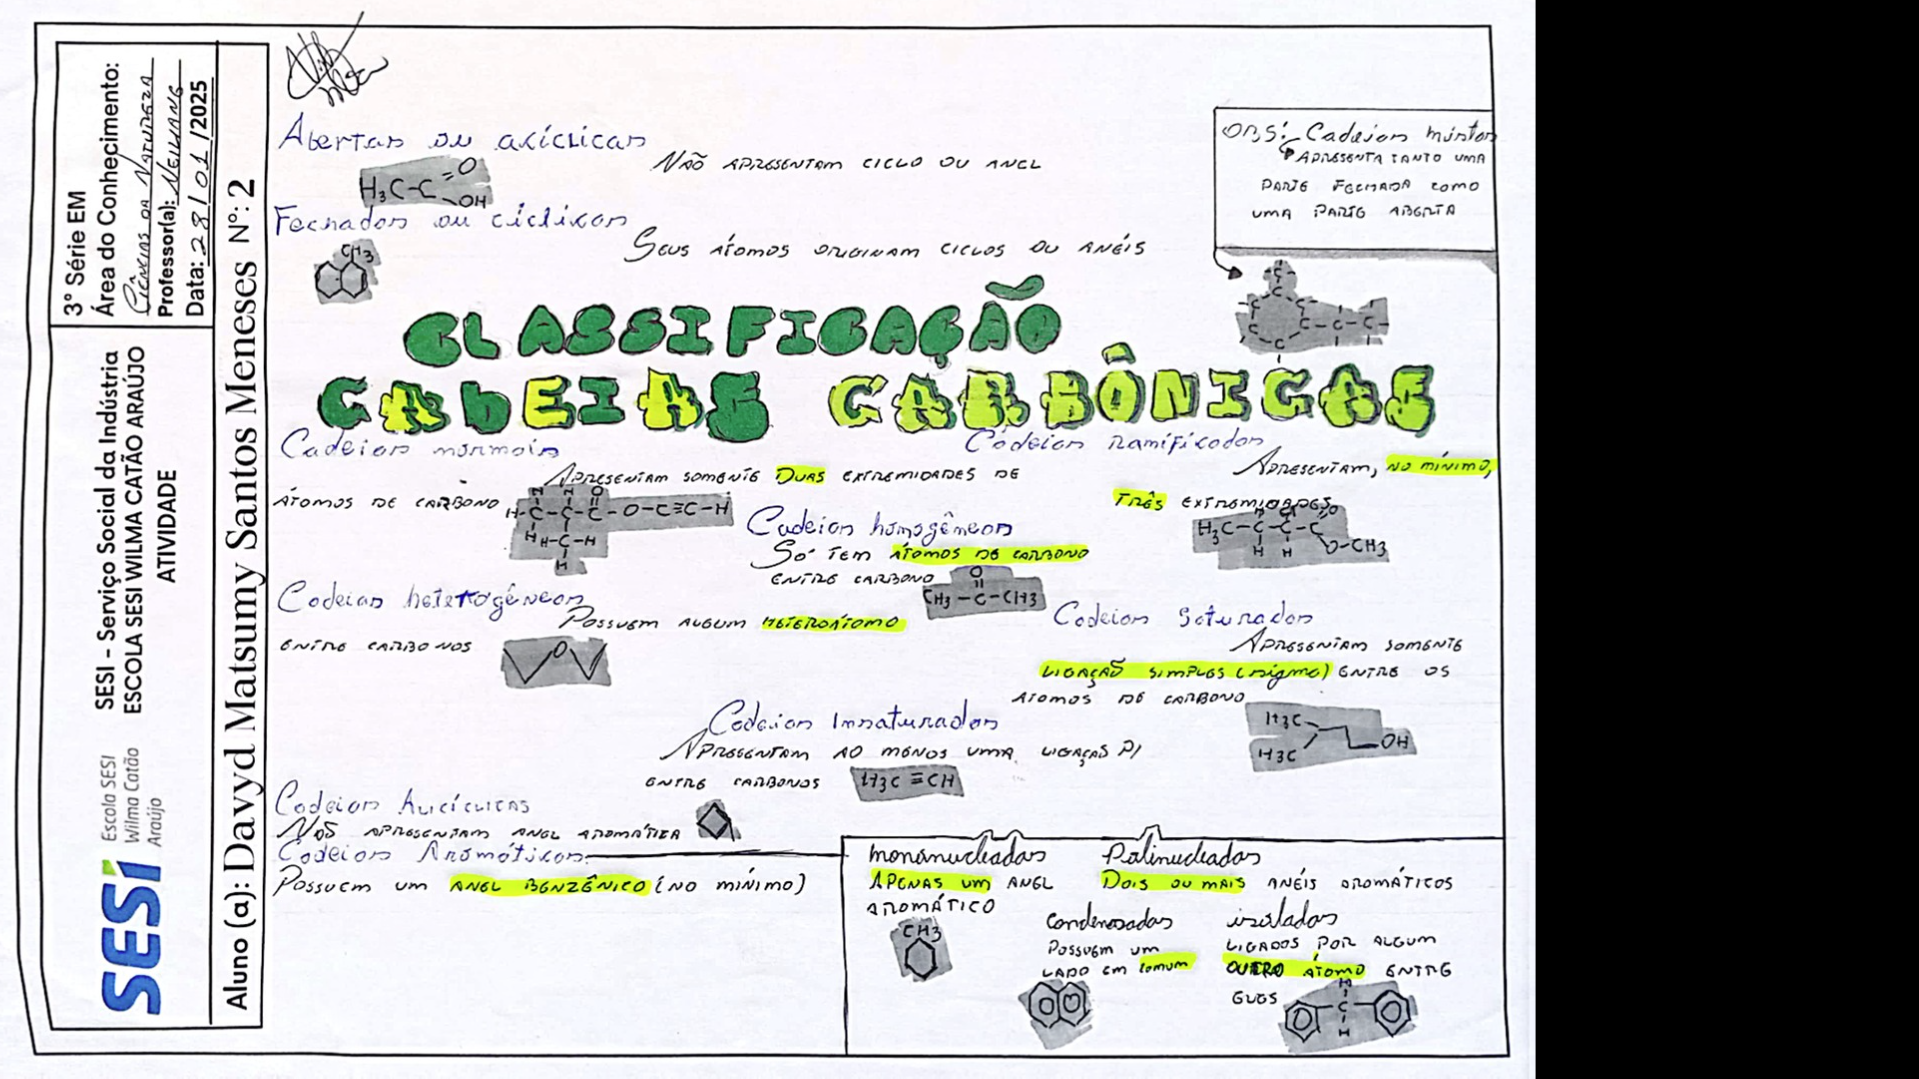 3ª Série EM
Área do Conhecimento:
Ciências da Natureza
Professor(a): Neiliane
Data: 28/01/2025
SESI - Serviço Social da Indústria
ESCOLA SESI WILMA CATÃO ARAÚJO
ATIVIDADE
SESI
Escola SESI
Wilma Catão
Araújo
Aluno (a): Davyd Matsumy Santos Meneses N°: 2
Abertas ou acíclicas
NÃO APRESENTAM CICLO OU ANEL
H₃C-C
=O
-OH
Fechadas ou cíclicas
SEUS ÁTOMOS ORIGINAM CICLOS OU ANÉIS
CH3
OBS: Cadeias mistas
APRESENTA TANTO UMA
PARTE FECHADA COMO
UMA PARTE ABERTA
CLASSIFICAÇÃO
CADEIAS CARBÔNICAS
Cadeias normais
APRESENTAM SOMENTE DUAS EXTREMIDADES DE
ÁTOMOS DE CARBONO
H-C-C-C-O-C≡C-H
H H-C-H
H
Cadeias ramificadas
APRESENTAM, NO MÍNIMO,
TRÊS EXTREMIDADES
H3C-C-C-C
O-CH3
Cadeias homogêneas
SÓ TEM ÁTOMOS DE CARBONO
ENTRE CARBONO
O
CH3-C-CH3
Cadeias heterogêneas
POSSUEM ALGUM HETEROÁTOMO
ENTRE CARBONOS
O
Cadeias Saturadas
APRESENTAM SOMENTE
LIGAÇÃO SIMPLES (sigma) ENTRE OS
ÁTOMOS DE CARBONO
H3C
H3C
OH
Cadeias Insaturadas
APRESENTAM AO MENOS UMA LIGAÇÃO PI
ENTRE CARBONOS
H3C≡CH
Cadeias Alicíclicas
NÃO APRESENTAM ANEL AROMÁTICA
Cadeias Aromáticas
POSSUEM UM ANEL BENZÊNICO (NO MÍNIMO)
mononucleadas
APENAS UM ANEL
AROMÁTICO
CH3
Polinucleadas
DOIS OU MAIS ANÉIS AROMÁTICOS
condensadas
POSSUEM UM
LADO EM comum
isoladas
LIGADOS POR ALGUM
OUTRO ÁTOMO ENTRE
ELES
H
C
H